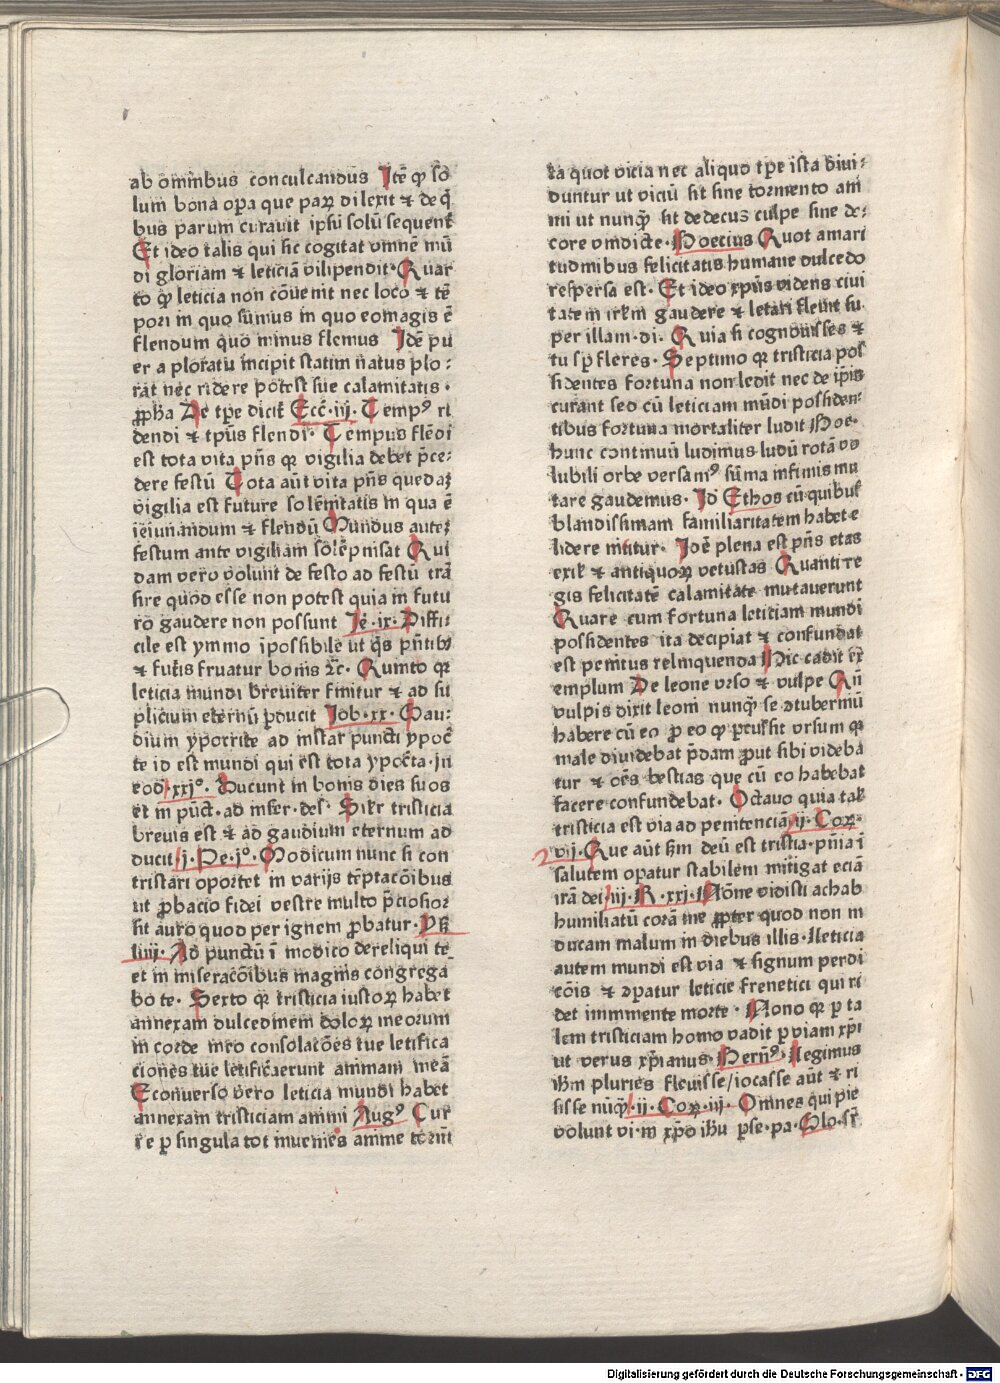 ab omnibus conculcandus Itē ꝙ so
lum bona oꝑa que paꝝ dilexit ⁊ de q̄
bus parum curauit ipsū solū sequent̄
Et ideo talis qui sic cogitat omnē mū
di gloriam ⁊ leticiā vilipendit· Quar
to ꝙ leticia non cōuenit nec loco ⁊ tē
pori in quo sumus in quo eomagis ē
flendum quo minus flemus Idē pu
er a ploratu incipit statim natus plo:
rāt nec ridere potest sue calamitatis·
ꝓpha De tꝑe dicit̄ Ecc̄·iij· Tempꝰ ri
dendi ⁊ tp̄us flendi· Tempus flēdi
est tota vita p̄ns qꝛ vigilia debet p̄ce-
dere festū Tota aūt vita p̄ns quedaꝫ
vigilia est future solēmtatis in qua ē
ieiunandum ⁊ flendū Mundus auteꝫ
festum ante vigiliam solēpnisat Qui
dam vero volunt de festo ad festū trā
sire quod esse non potest quia in futu
ro gaudere non possunt Iē·ix· Diffi:
cile est ymmo īpossibile ut q̄s pn̄tibꝫ
⁊ futīs fruatur bonis ⁊c̄· Quinto qꝛ
leticia mundi breuiter finitur ⁊ ad su
plicium eternū ꝑducit Iob·xx· Gau:
dium ypocrite ad instar puncti ypoc̄
te id est mundi qui est tota ypoc̄ta·In
eod̄ xxjº· Ducunt in bonis dies suos
et in pūct̄·ad infer·des̄· Sil̄r tristicia
breuis est ⁊ ad gaudium eternum ad
ducit j·Pe·jº· Modicum nunc si con
tristari oportet in varijs tēptacōibus
ut ꝓbacio fidei vestre multo p̄ciosior
sit auro quod per ignem ꝓbatur·Ps̄
liiij· Ad punctū ī modico dereliqui te
et in miseracōibus magnis congrega
bo te· Sexto qꝛ tristicia iustoꝝ habet
annexam dulcedinem doloꝝ meorum
in corde meo consolacōes tue letifica
ciones tue letificauerunt animam meā
Econuerso vero leticia mundi habet
annexam tristiciam animi Augꝰ Cur
re ꝑ singula tot inuenies anime torm̄
ta quot vicia nec aliquo tꝑe ista diui:
duntur ut viciū sit sine tormento ani
mi ut nunq̄ sit dedecus culpe sine de:
core vindicte· Boecius Quot amari
tudinibus felicitatis humane dulcedo
respersa est· Et ideo xp̄us videns ciui
tatem irl̄m gaudere ⁊ letari fleuit su
per illam·di· Quia si cognouisses ⁊
tu sꝑ fleres· Septimo qꝛ tristicia pos
sidentes fortuna non ledit nec de ip̄is
curant sed cū leticiam mūdi possiden:
tibus fortuna mortaliter ludit Boe·
hunc continuū ludimus ludū rotā vo
lubili orbe versamꝰ sūma infimis mu
tare gaudemus· Id̄ Ethos cū quibus
blandissimam familiaritatem habet e
lidere nititur· Idē plena est p̄ns etas
exil̄ ⁊ antiquoꝝ vetustas Quanti re
gis felicitatē calamitate mutauerunt
Quare cum fortuna leticiam mundi
possidentes ita decipiat ⁊ confundat
est penitus relinquenda Hic cadit ex
emplum De leone vrso ⁊ vulpe Qn̄
vulpis dixit leoni nunq̄ se ꝯtuberniū
habere cū eo ꝑ eo ꝙ ꝑcussit vrsum qꝛ
male diuidebat p̄dam ꝓut sibi videba
tur ⁊ oēs bestias que cū eo habebāt
facere confundebat· Octauo quia tal̄
tristicia est via ad penitenciā ij·Coꝝ·
vij· Que aūt s̄m deū est tristia·pn̄ia ī
salutem opatur stabilem mitigat eciā
irā dei iij·R·xxj· Nōne vidisti achab
humiliatū corā me ꝓpter quod non in
ducam malum in diebus illis· Leticia
autem mundi est via ⁊ signum perdi
cōis ⁊ ꝯparatur leticie frenetici qui ri
det imminente morte· Nono qꝛ ꝑ ta
lem tristiciam homo vadit ꝑ viam xp̄i
ut verus xp̄ianus· Bern̄ꝰ· Legimus
ih̄m pluries fleuisse/iocasse aūt ⁊ ri
sisse nūq̄ ij·Coꝝ·iij· Omnes qui pie
volunt vi·in xp̄o ih̄u ꝑse·pa·Glo·sr̄
2
Digitalisierung gefördert durch die Deutsche Forschungsgemeinschaft - DFG